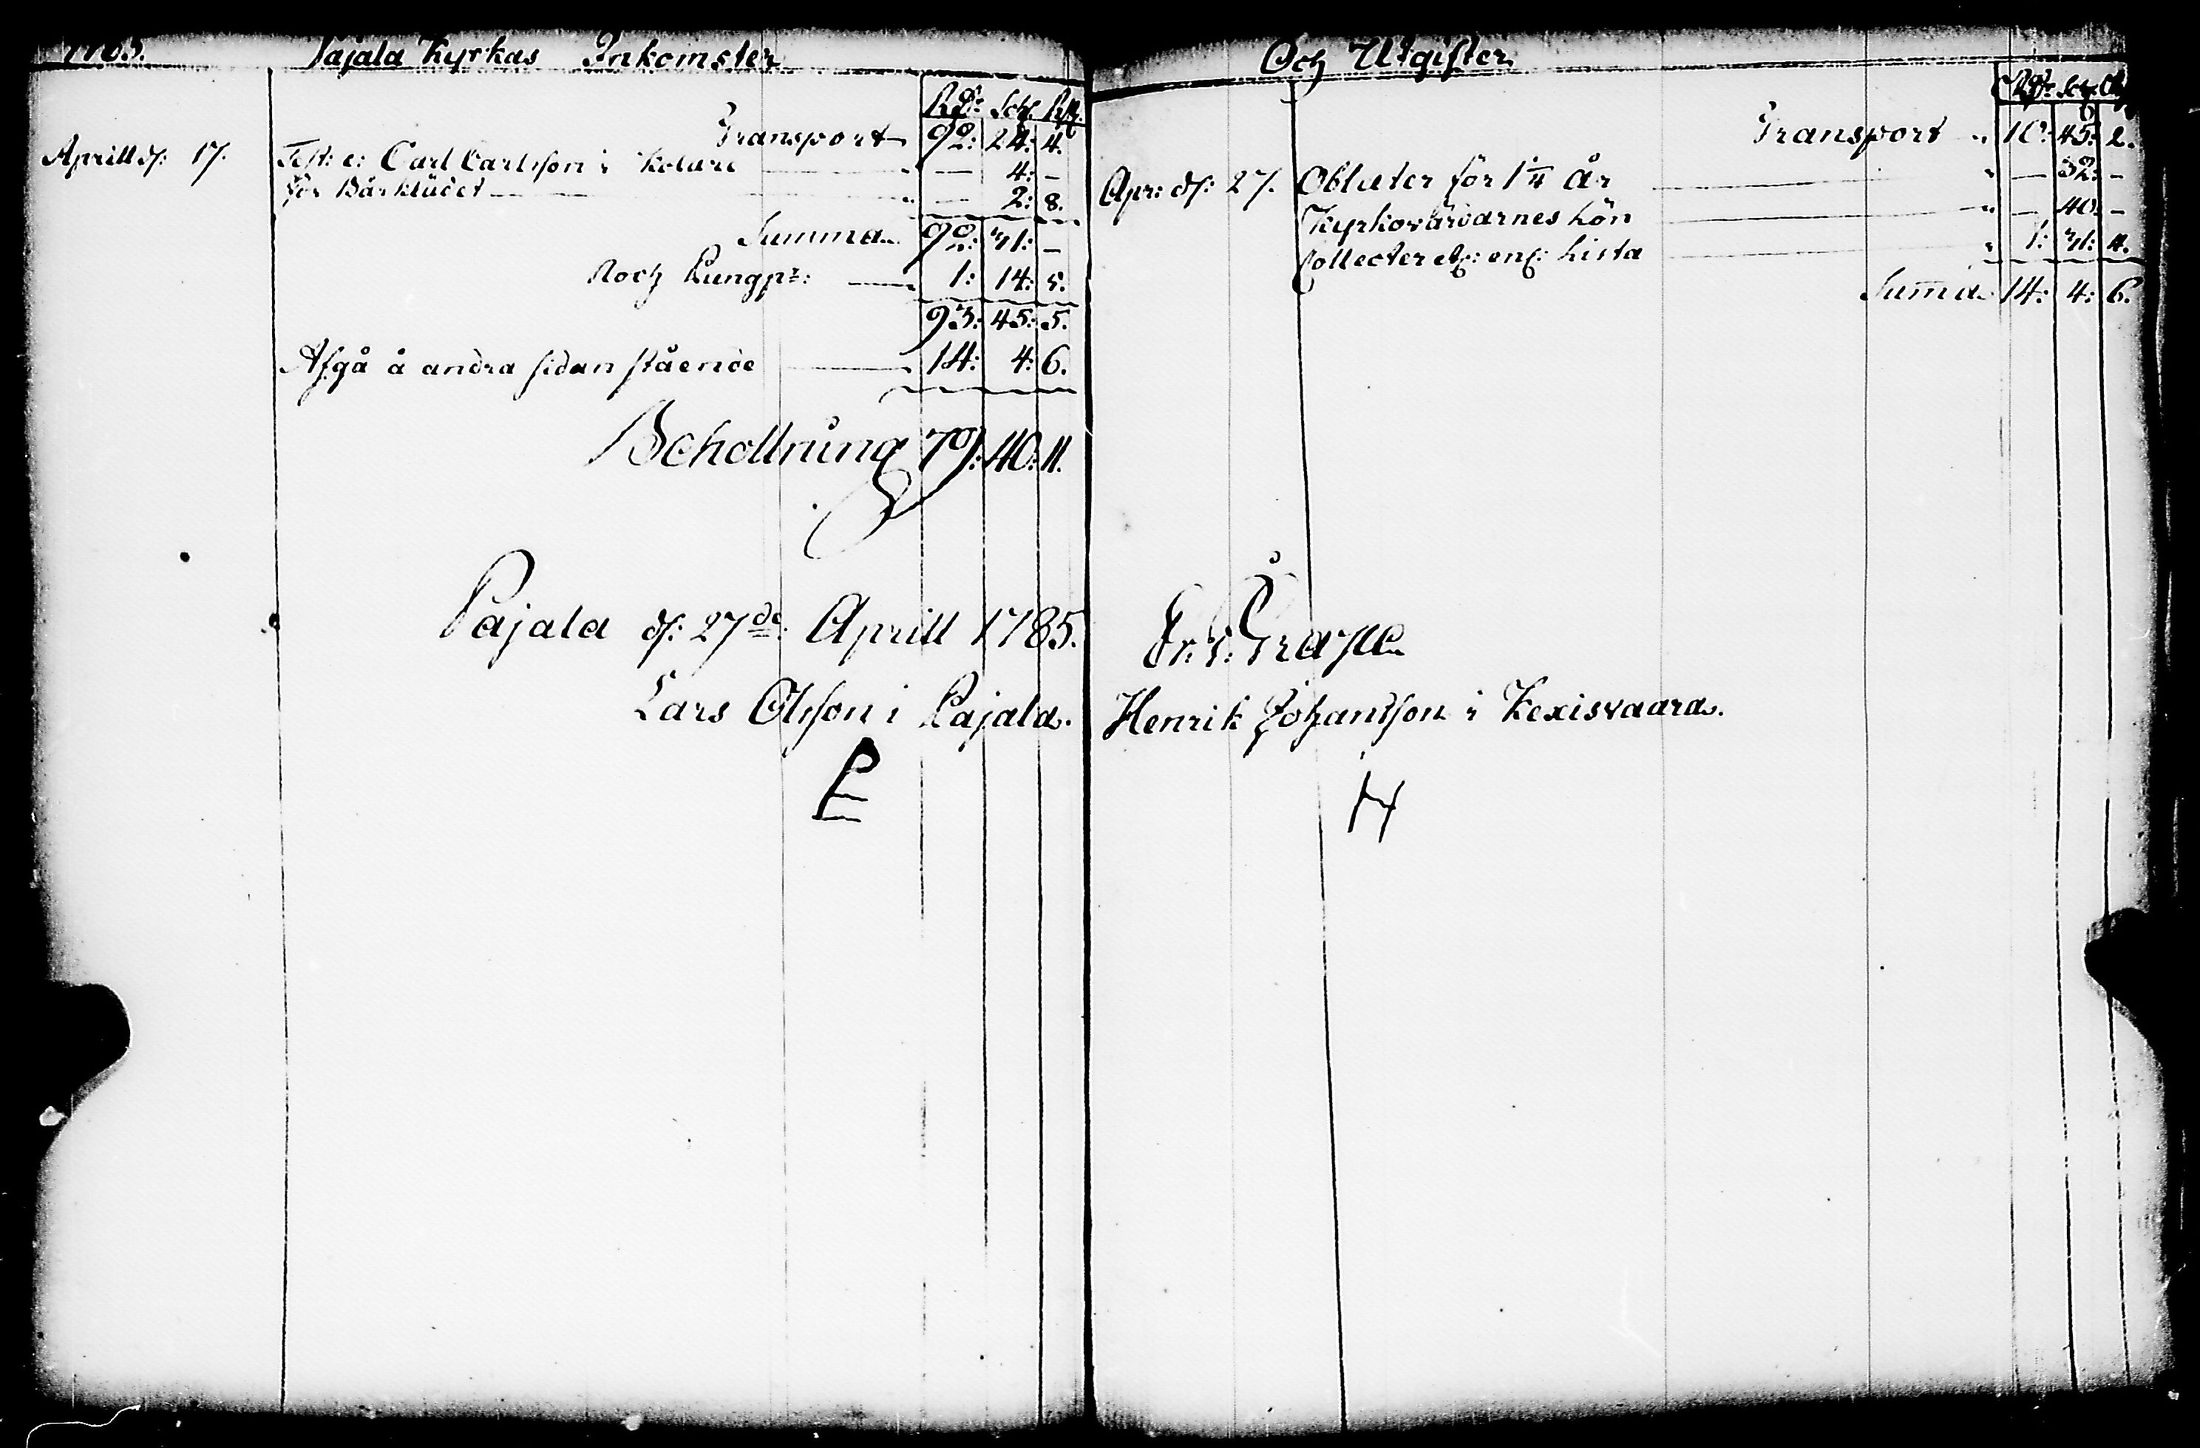 1785.
Pajala Kyrkas Inkomster
Rdr. Sch. Rst.
Transport 92: 24: 4.
Aprill d: 17. Test: e: Carl Carlsson i Kolare — 4: —
för Bårklädet — 2: 8.
Summa 92: 31: —
Noch Pungpr: 1: 14: 5.
93: 45: 5.
Afgå å andra sidan stående 14: 4: 6.
Beholtning 79: 40: 11.
Pajala d: 27de Aprill 1785.
Lars Olsson i Pajala.
Och Utgifter
Rdr. Sch. Rst.
Transport 10: 45: 2.
Apr: d: 27. Oblater för 1 1/4 År — 32: —
Kyrkovärdarnes Lön — 40 —
Collecter etc: enl: Lista 1: 31: 4.
Summa 14: 4: 6.
Henrik Johansson i Kexisvaara.
H